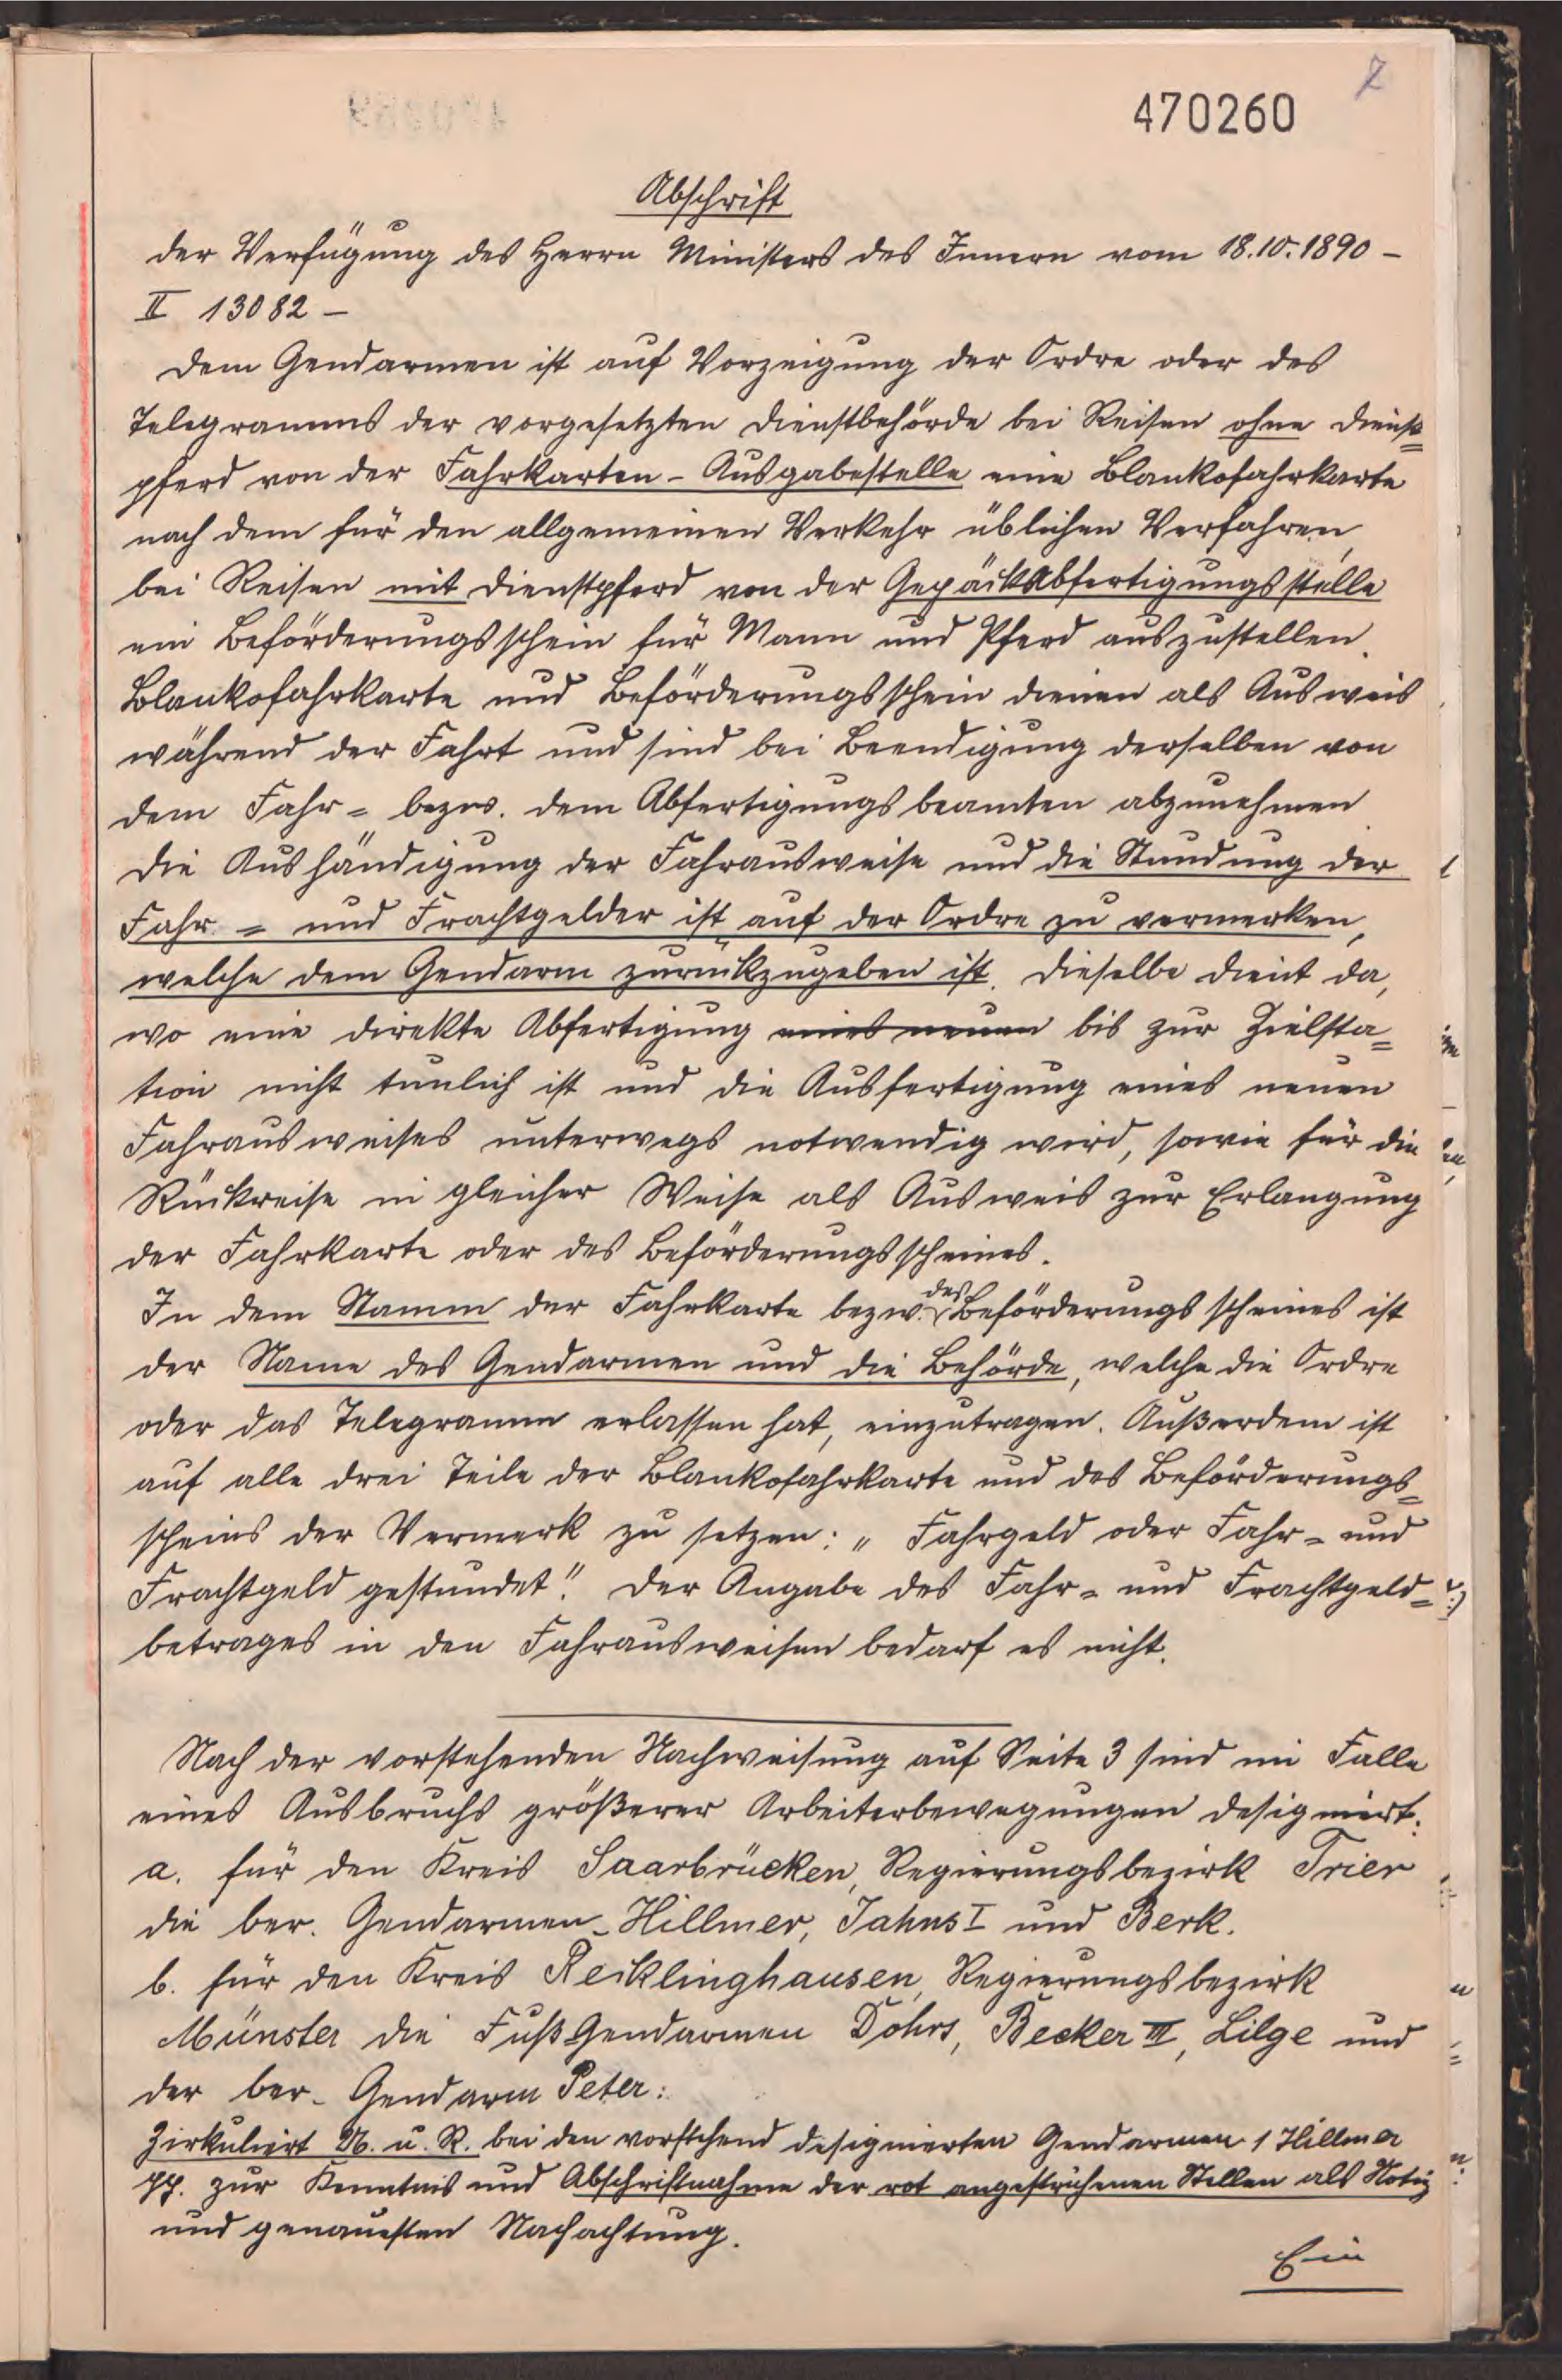 7
470260
Abschrift
der Verfügung des Herrn Ministers des Innern vom 18.10.1890 -
II 13082 -
Dem Gendarmen ist auf Vorzeigung der Ordre oder des
Telegramms der vorgesetzten Dienstbehörde bei Reisen ohne Dienst=
pferd von der Fahrkarten-Ausgabestelle eine Blankofahrkarte
nach dem für den allgemeinen Verkehr üblichen Verfahren,
bei Reisen mit Dienstpferd von der Gepäckabfertigungsstelle
ein Beförderungsschein für Mann und Pferd auszustellen.
Blankofahrkarte und Beförderungsschein dienen als Ausweis
während der Fahrt und sind bei Beendigung derselben von
dem Fahr= bezw. dem Abfertigungsbeamten abzunehmen.
Die Aushändigung der Fahrausweise und die Stundung der
Fahr= und Frachtgelder ist auf der Ordre zu vermerken,
welche dem Gendarm zurückzugeben ist. Dieselbe dient da,
wo eine direkte Abfertigung eines neuen bis zur Zielsta=
tion nicht tunlich ist und die Ausfertigung eines neuen
Fahrausweises unterwegs notwendig wird, sowie für die
Rückreise in gleicher Weise als Ausweis zur Erlangung
der Fahrkarte oder des Beförderungsscheines.
In dem Stamm der Fahrkarte bezw. des Beförderungsscheines ist
der Name des Gendarmen und die Behörde, welche die Ordre
oder das Telegramm erlassen hat, einzutragen. Außerdem ist
auf alle drei Teile der Blankofahrkarte und des Beförderungs=
scheins der Vermerk zu setzen: „Fahrgeld oder Fahr= und
Frachtgeld gestundet". Der Angabe des Fahr= und Frachtgeld=
betrages in den Fahrausweisen bedarf es nicht.
Nach der vorstehenden Nachweisung auf Seite 3 sind im Falle
eines Ausbruchs größerer Arbeiterbewegungen designiert:
a. für den Kreis Saarbrücken, Regierungsbezirk Trier
die ber. Gendarmen Hillmer, Jahns I und Berk.
b. für den Kreis Recklinghausen, Regierungsbezirk
Münster die Fuß Gendarmen Döhrs, Becker III, Lilge und
der ber. Gendarm Peter:
Zirkuliert U. u. R. bei den vorstehend designierten Gendarmen 1 Hillmer
pp. zur Kenntnis und Abschriftnahme der rot angestrichenen Stellen als Notiz
und genauesten Nachachtung.
Ein